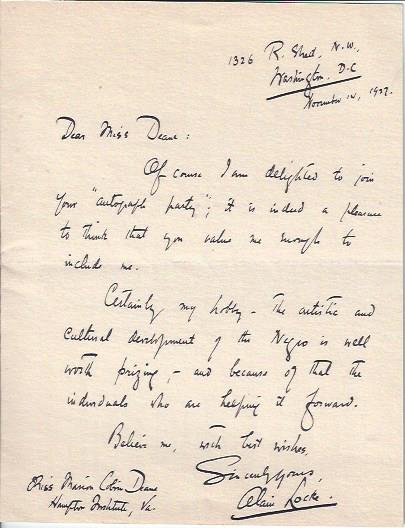 1326 R. Street, N.W.,
Washington, D.C
November 14, 1927.
Dear Miss Deane:
Of course I am delighted to join
your "autograph party"; it is indeed a pleasure
to think that you value me enough to
include me.
Certainly my hobby - the artistic and
cultural development of the Negro is well
worth prizing, - and because of that the
individuals who are helping it forward.
Believe me, with best wishes,
Sincerely yours,
Alain Locke.
Miss Marion Colvin Deane
Hampton Institute, Va.